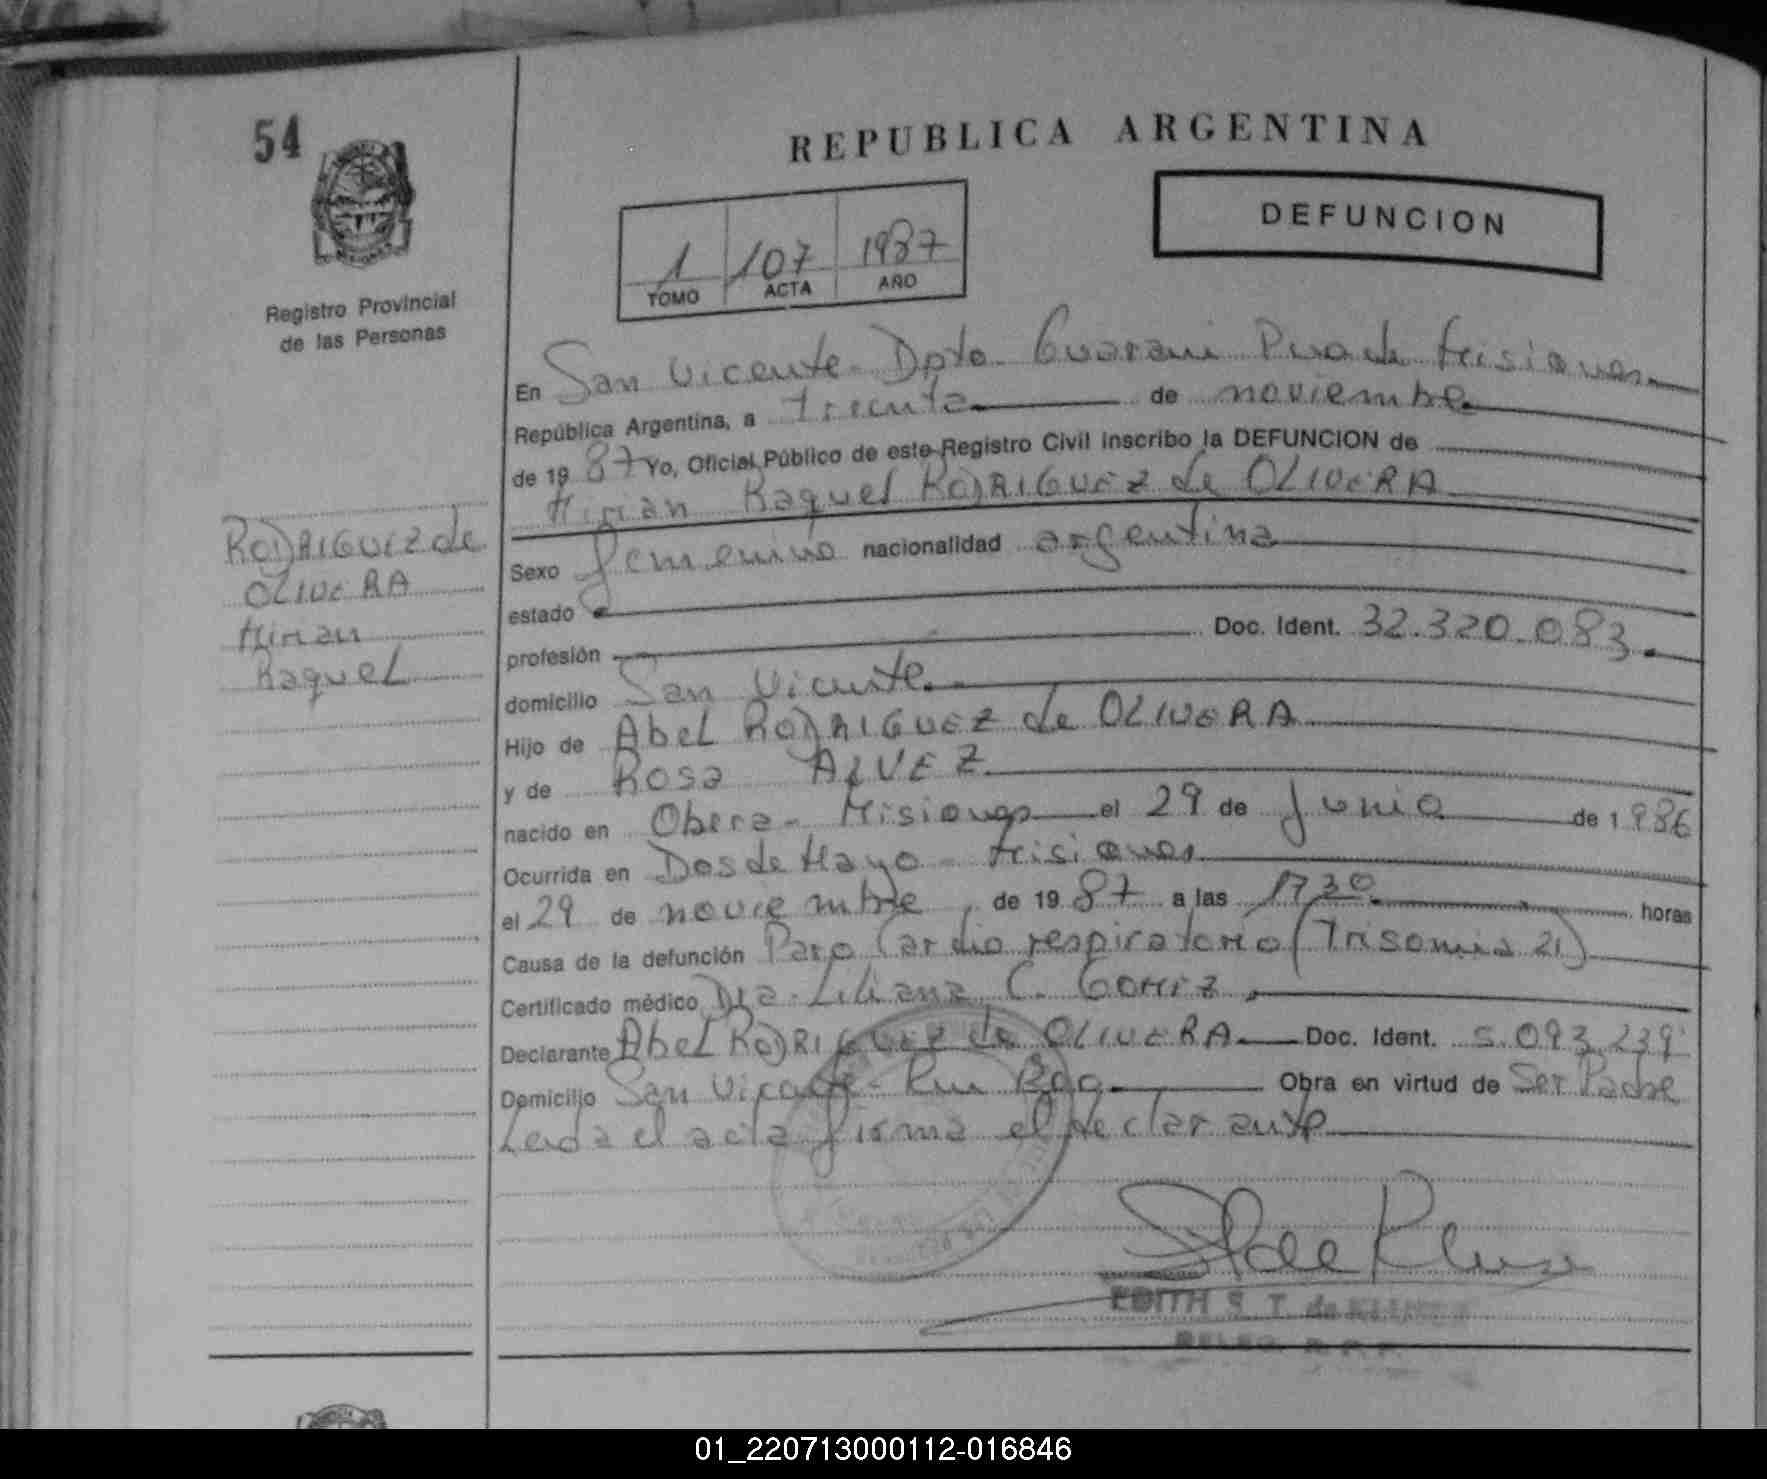 54
REPUBLICA ARGENTINA
DEFUNCION
1 107 1987
TOMO ACTA AÑO
Registro Provincial
de las Personas
En San Vicente - Dpto. Guarani Pvia de Misiones
República Argentina, a Treinta de noviembre
de 1987 Yo, Oficial Público de este Registro Civil inscribo la DEFUNCION de
Mirian Raquel RODRIGUEZ de OLIVERA
RODRIGUEZ de
OLIVERA
Mirian
Raquel
Sexo femenino nacionalidad argentina
estado
profesión Doc. Ident. 32.320.083.
domicilio San Vicente
Hijo de Abel RODRIGUEZ de OLIVERA
y de Rosa ALVEZ
nacido en Obera - Misiones el 29 de Junio de 1986
Ocurrida en Dos de Mayo - Misiones
el 29 de noviembre, de 1987 a las 17,30 horas
Causa de la defunción Paro Cardio respiratorio (Trisomia 21)
Certificado médico Dra. Liliana C. GOMEZ
Declarante Abel RODRIGUEZ de OLIVERA Doc. Ident. 5.093.239
Domicilio San Vicente - Obra en virtud de Ser Padre
Leida el acta firma el declarante
EDITH S. T. de
01_220713000112-016846